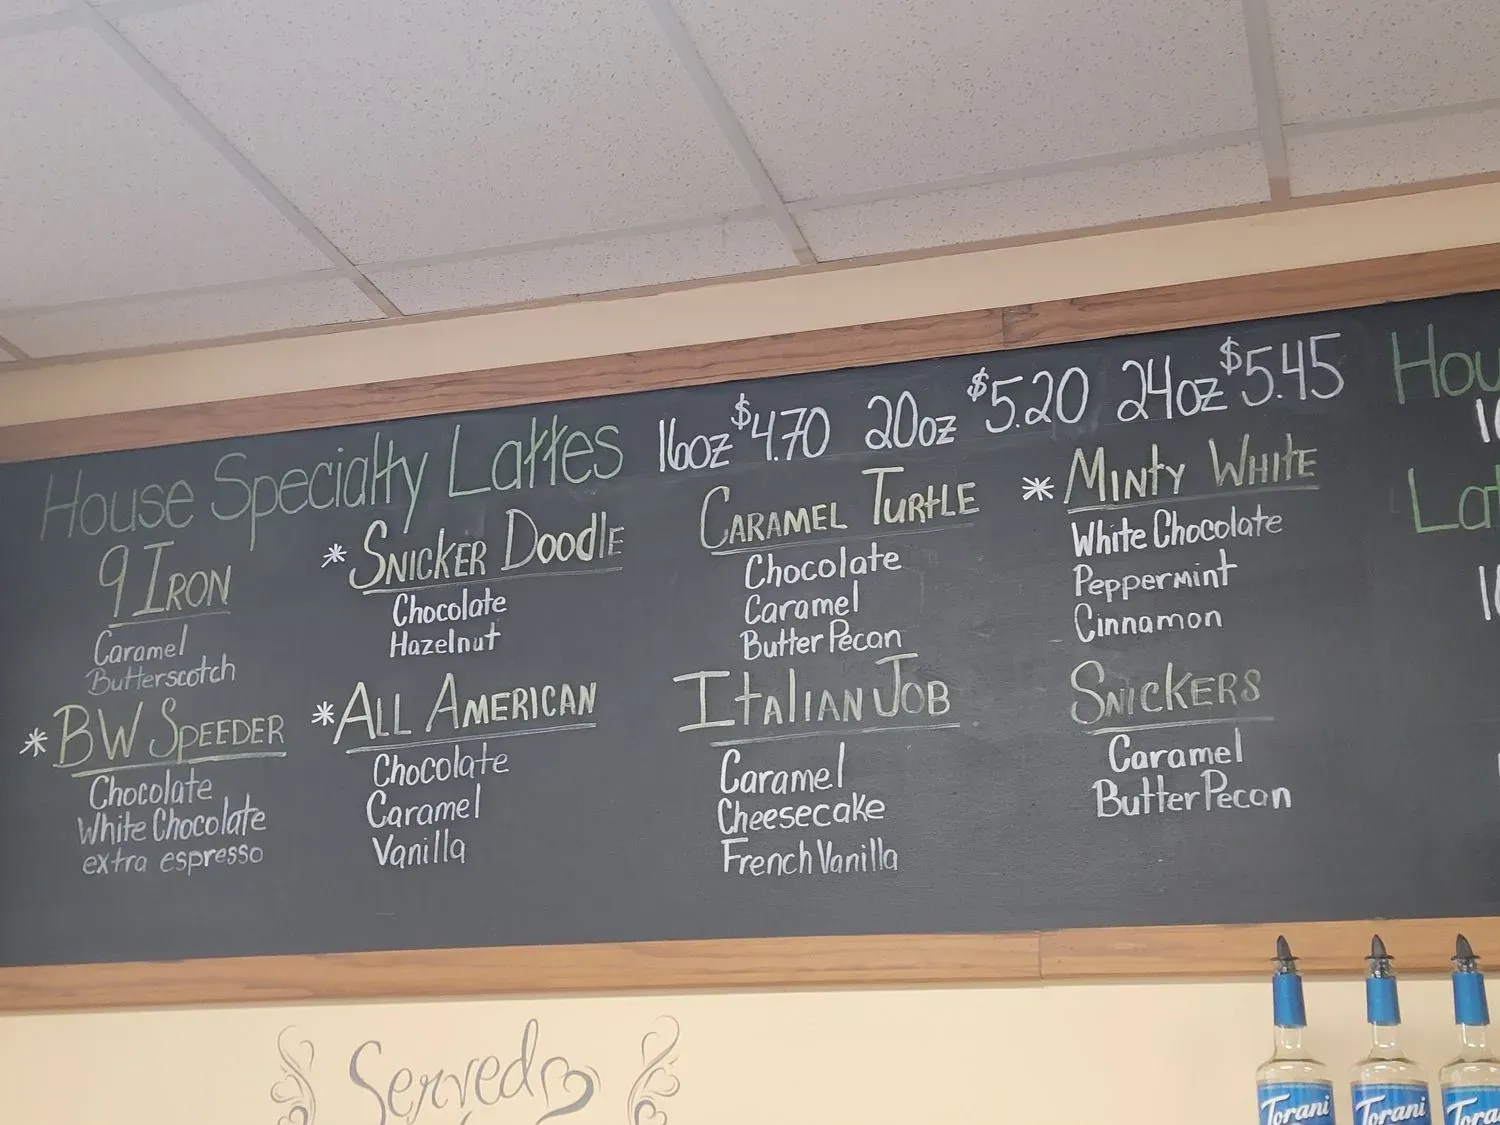 House Specialty Lattes 16oz $4.70 20oz $5.20 24oz $5.45
9 IRON
Caramel
Butterscotch
* SNICKER DOODLE
Chocolate
Hazelnut
CARAMEL TURTLE
Chocolate
Caramel
Butter Pecan
* MINTY WHITE
White Chocolate
Peppermint
Cinnamon
* BW SPEEDER
Chocolate
White Chocolate
extra espresso
* ALL AMERICAN
Chocolate
Caramel
Vanilla
ITALIAN JOB
Caramel
Cheesecake
French Vanilla
SNICKERS
Caramel
Butter Pecan
Served
Torani
Torani
Torani